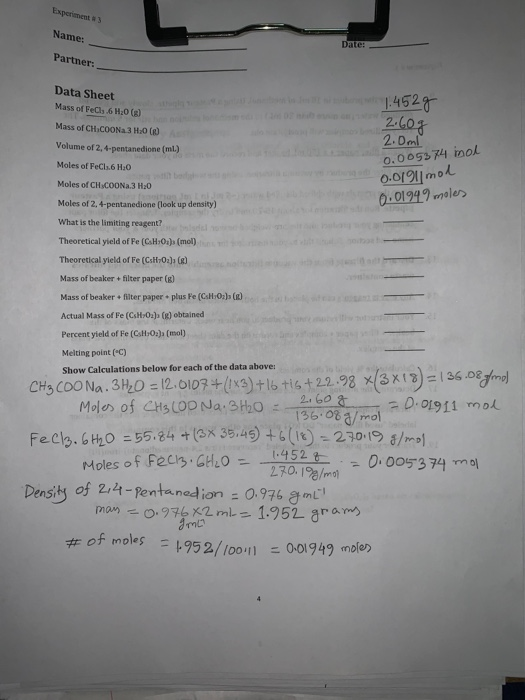 Experiment # 3
Name:
Date:
Partner:
Data Sheet
Mass of FeCl₃.6 H₂O (g) 1.452g
Mass of CH₃COONa.3 H₂O (g) 2.60g
Volume of 2, 4-pentanedione (mL) 2.0ml
Moles of FeCl₃.6 H₂O 0.005374 mol
Moles of CH₃COONa.3 H₂O 0.01911 mol
Moles of 2, 4-pentanedione (look up density) 0.01949 moles
What is the limiting reagent?
Theoretical yield of Fe (C₅H₇O₂)₃ (mol)
Theoretical yield of Fe (C₅H₇O₂)₃ (g)
Mass of beaker + filter paper (g)
Mass of beaker + filter paper + plus Fe (C₅H₇O₂)₃ (g)
Actual Mass of Fe (C₅H₇O₂)₃ (g) obtained
Percent yield of Fe (C₅H₇O₂)₃ (mol)
Melting point (°C)
Show Calculations below for each of the data above:
CH₃COONa.3H₂O = 12.0107+(1×3)+16+16+22.98 ×(3×18)=136.08g/mol
Moles of CH₃COONa.3H₂O = 2.60 g / 136.08 g/mol = 0.01911 mol
FeCl₃.6H₂O = 55.84 +(3× 35.45) +6(18) = 270.19 g/mol
Moles of FeCl₃.6H₂O = 1.452 g / 270.19g/mol = 0.005374 mol
Density of 2,4-Pentanedion = 0.976 gmL⁻¹
mass = 0.976 ×2 mL = 1.952 grams
gmL⁻¹
# of moles = 1.952/100.11 = 0.01949 moles
4